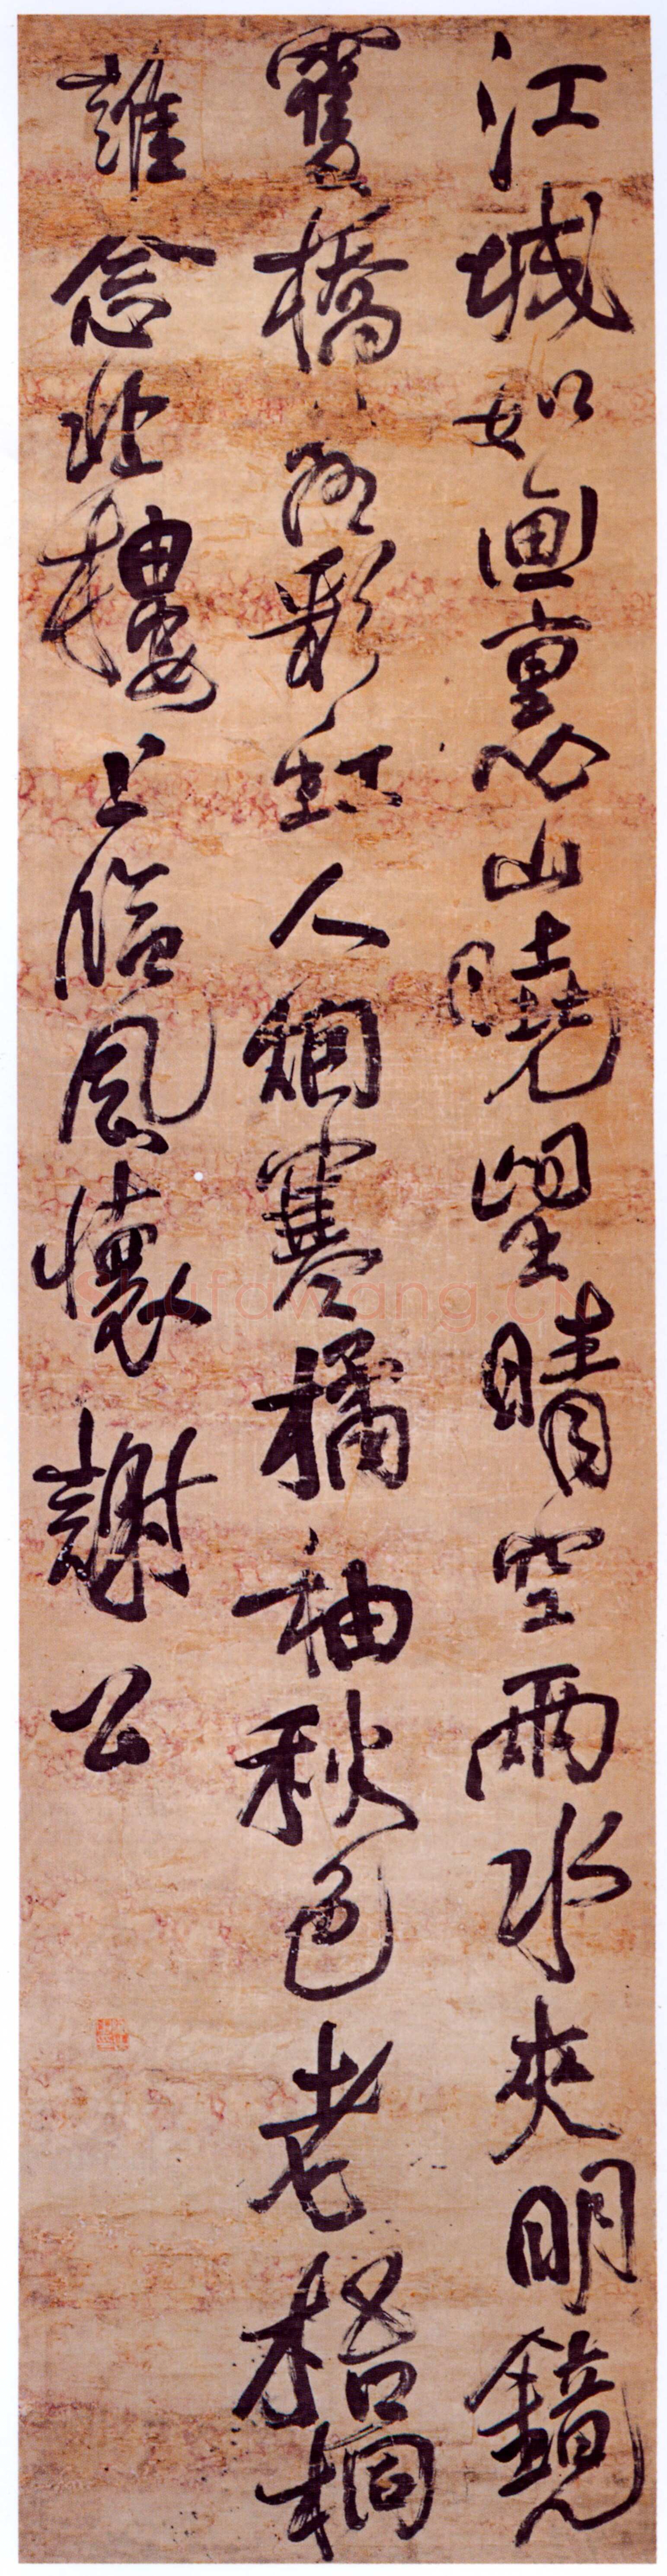 江城如畫裏山曉望晴空兩水夾明鏡
雙橋落彩虹人烟寒橘柚秋色老梧桐
誰念北樓上臨風懷謝公
shufawang.cn